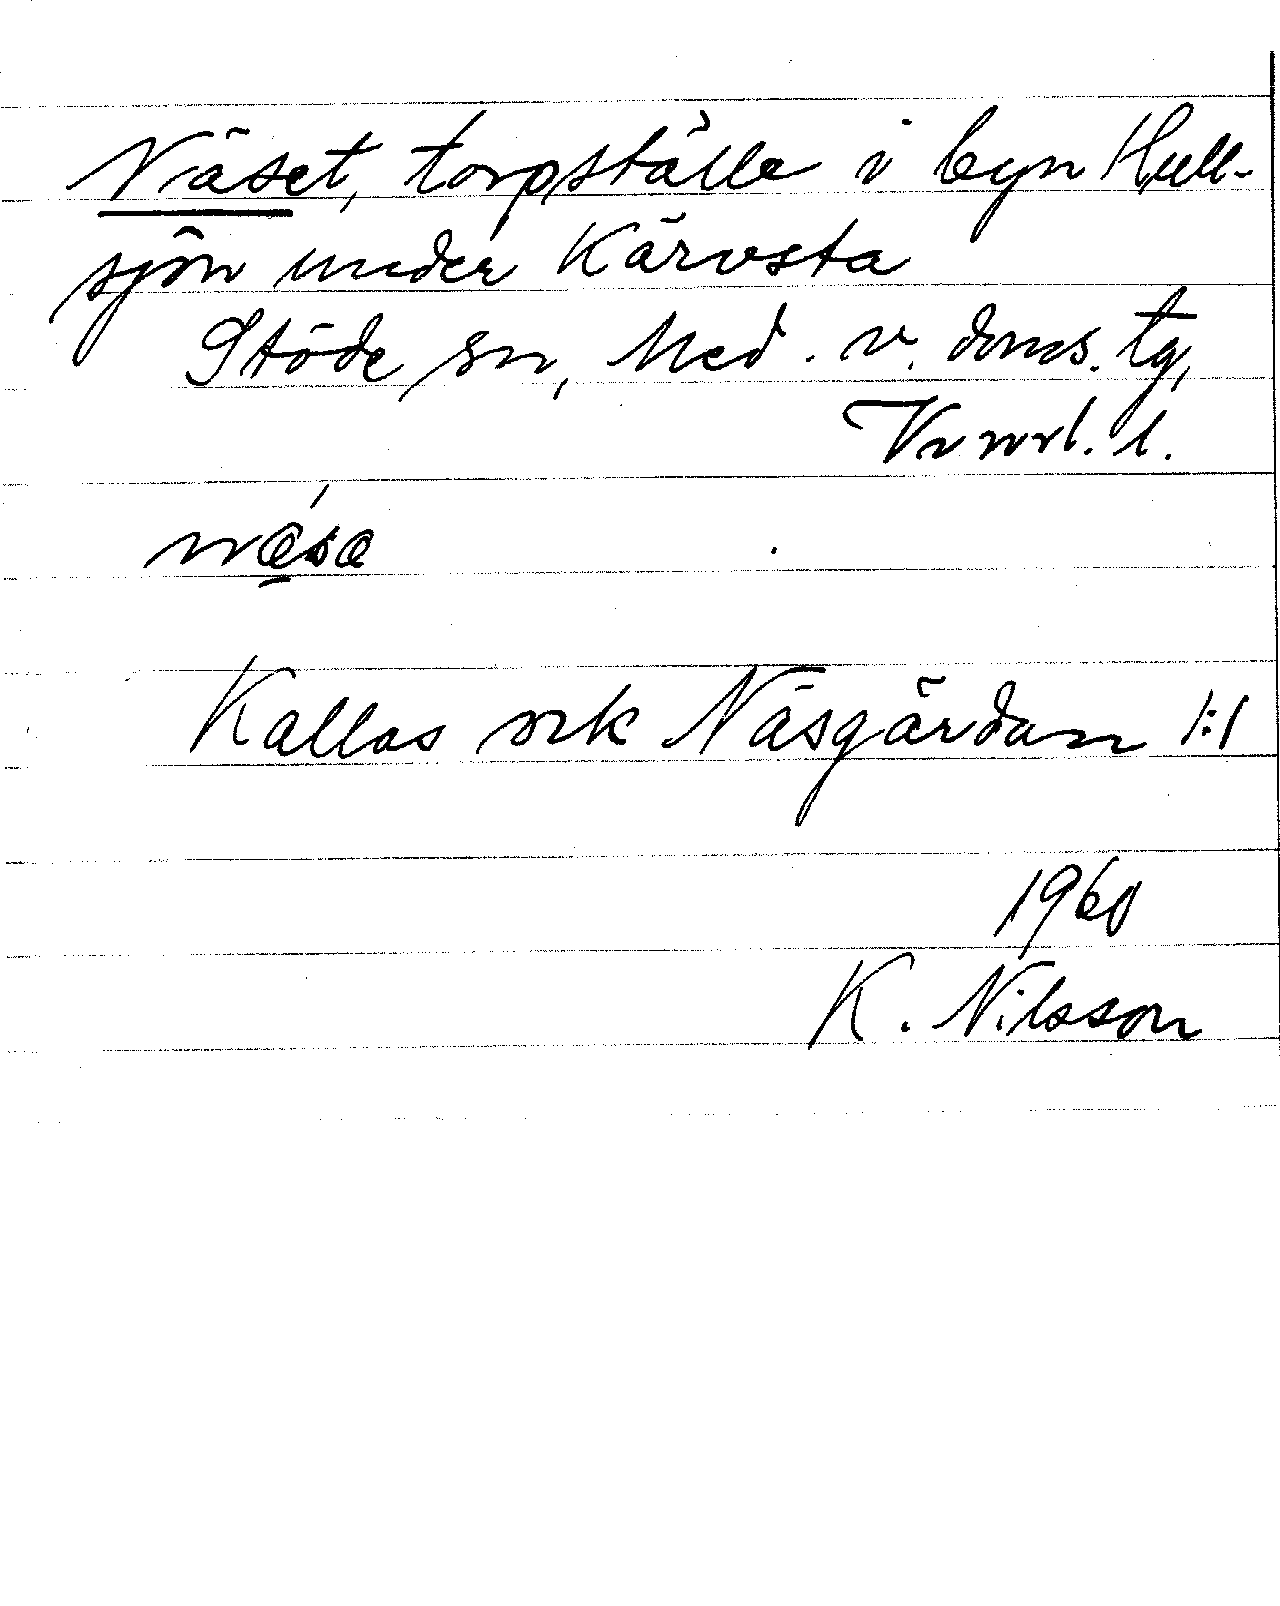 Näset, torpställe i byn Hull-
sjön under Kärvsta
Stöde sn, Med. v. doms. tg,
Vnorl. l.
näsa
Kallas ork Näsgärdan 1:1
1960
K. Nilsson